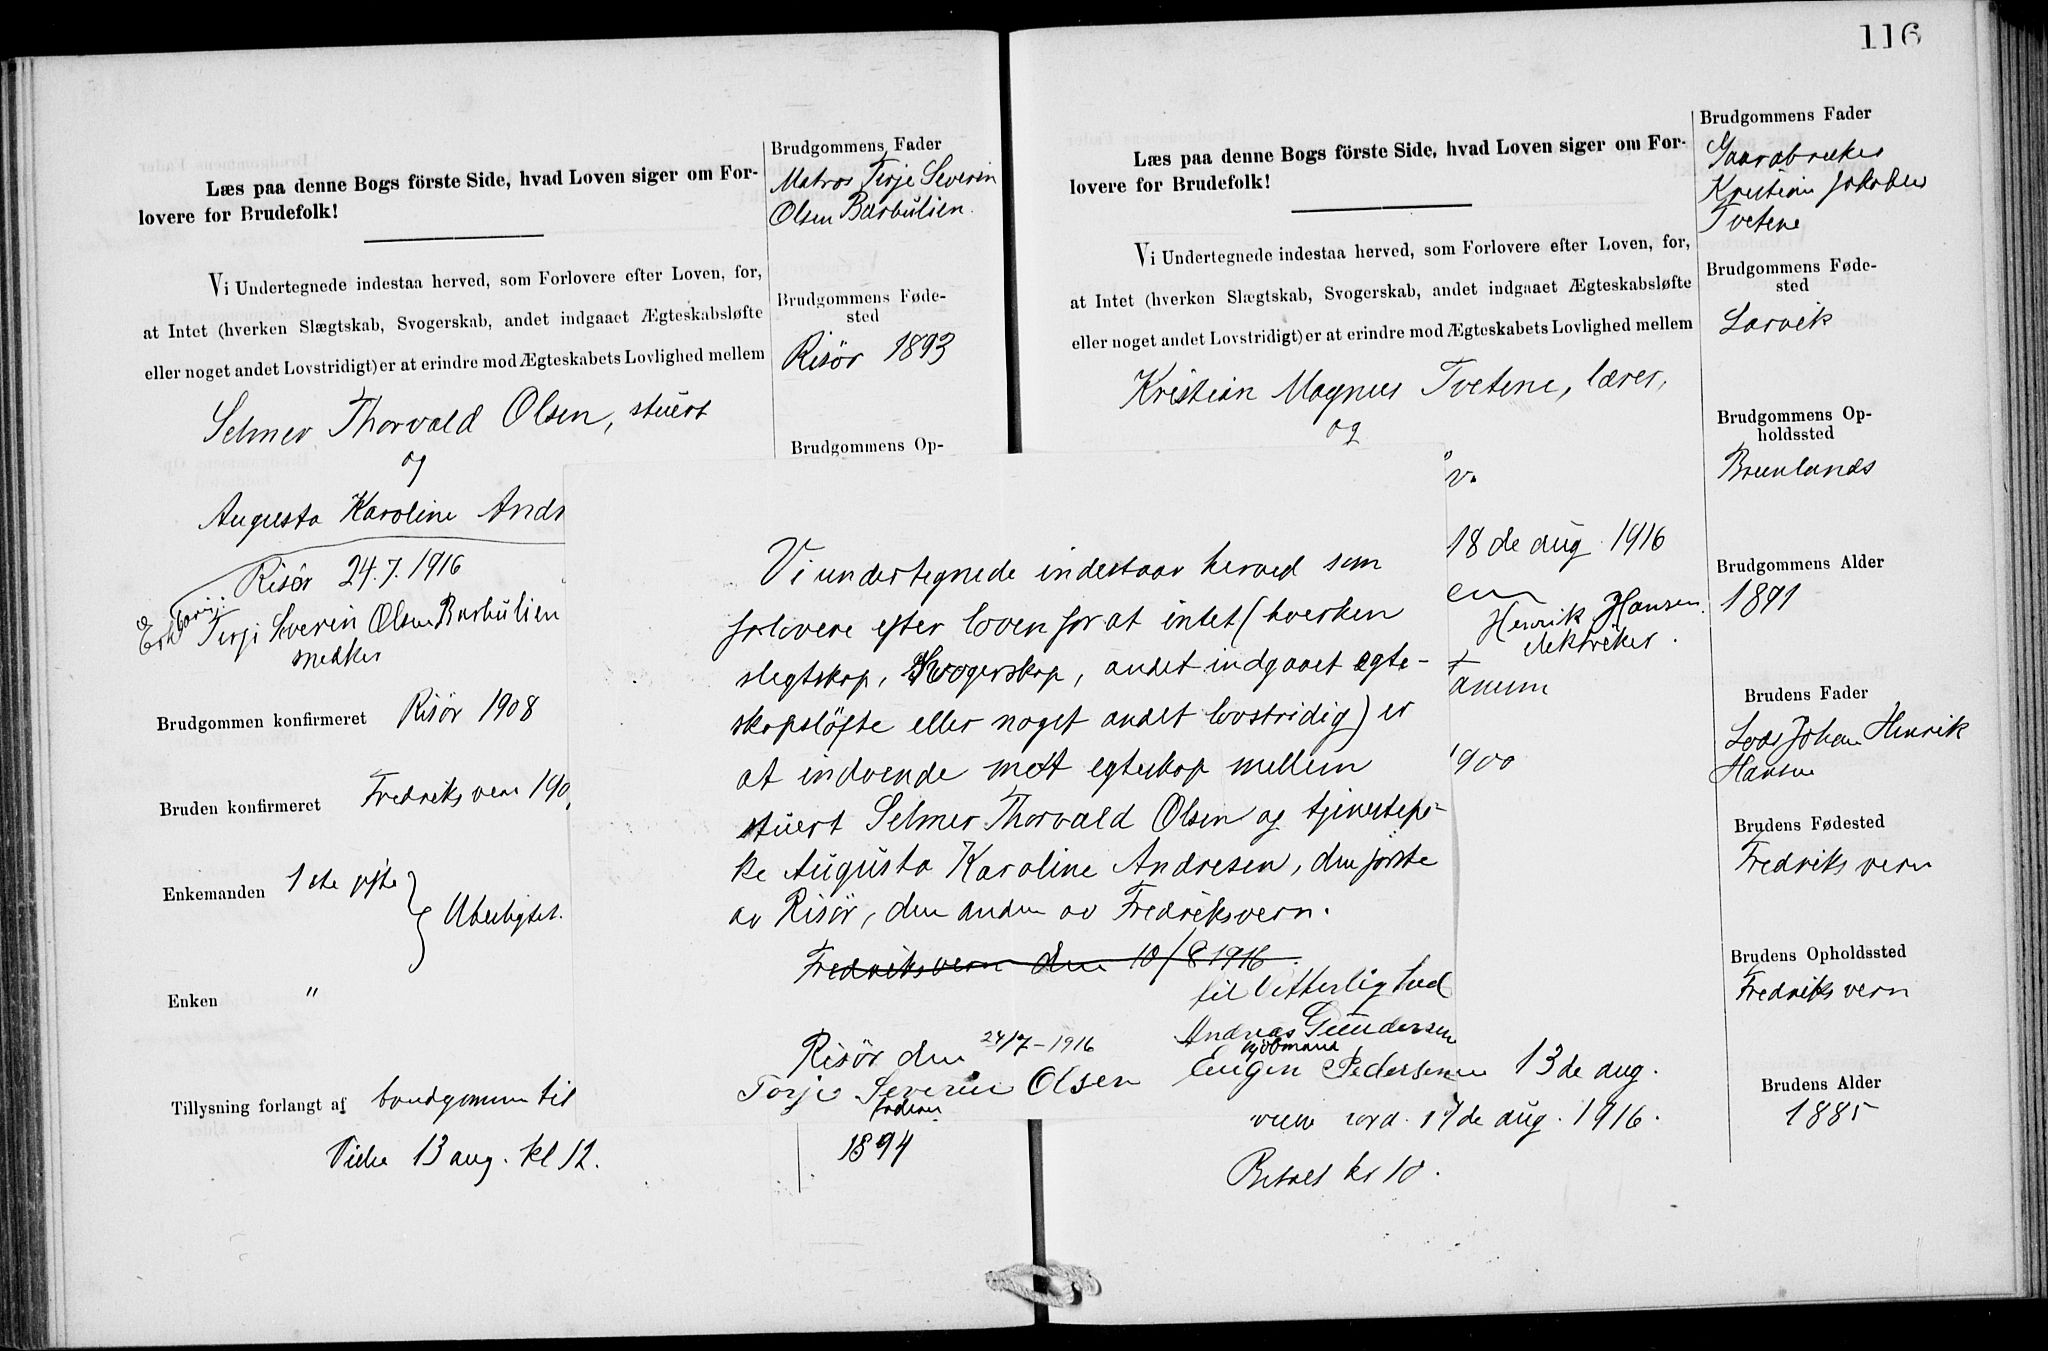 Læs paa denne Bogs förste Side, hvad Loven siger om For-
lovere for Brudefolk!
Vi Undertegnede indestaa herved, som Forlovere efter Loven, for,
at Intet (hverken Slægtskab, Svogerskab, andet indgaaet Ægteskabsløfte
eller noget andet Lovstridigt) er at erindre mod Ægteskabets Lovlighed mellem
Selmer Thorvald Olsen, stuert
og
Augusta Karoline Andr
Risör 24.7.1916
Terje Severin Olsen Barbulien
snedker
Brudgommen konfirmeret Risör 1908
Bruden konfirmeret Fredriksvern 190
Enkemanden 1ste gifte
Ubeslegtet.
Enken "
Tillysning forlangt af brudgommen til
Vielse 13 aug. kl 12.
Brudgommens Fader
Matros Terje Severin
Olsen Barbulien.
Brudgommens Føde-
sted
Risör 1893
Brudgommens Op-
1894
Vi undertegnede indestaar herved som
forlovere efter loven for at intet (hverken
slegtskap, Svogerskap, andet indgaaet egte-
skapsløfte eller noget andet lovstridig) er
at indvende mot egteskap mellem
stuert Selmer Thorvald Olsen og tjenestepi-
ke Augusta Karoline Andresen, den første
av Risör, den anden av Fredriksvern.
Fredriksvern den 10/8 1916.
til Vitterlighed
Andreas Gundersen
kjöbmand
Eugen Pedersen
Risör den 24/7-1916
Terje Severin Olsen
116
Læs paa denne Bogs förste Side, hvad Loven siger om For-
lovere for Brudefolk!
Vi Undertegnede indestaa herved, som Forlovere efter Loven, for,
at Intet (hverken Slægtskab, Svogerskab, andet indgaaet Ægteskabsløfte
eller noget andet Lovstridigt) er at erindre mod Ægteskabets Lovlighed mellem
Kristian Magnus Tvetene, lærer,
og
18 de aug. 1916
Henrik Hansen
elektriker.
1900
13 de aug.
17 de aug. 1916.
Betalt kr 10.
Brudgommens Fader
Gaardbruker
Kristian Jakobsen
Tvetene
Brudgommens Føde-
sted
Larvik
Brudgommens Op-
holdssted
Brunlanes
Brudgommens Alder
1891
Brudens Fader
Lods Johan Henrik
Hansen
Brudens Fødested
Fredriksvern
Brudens Opholdssted
Fredriksvern
Brudens Alder
1885